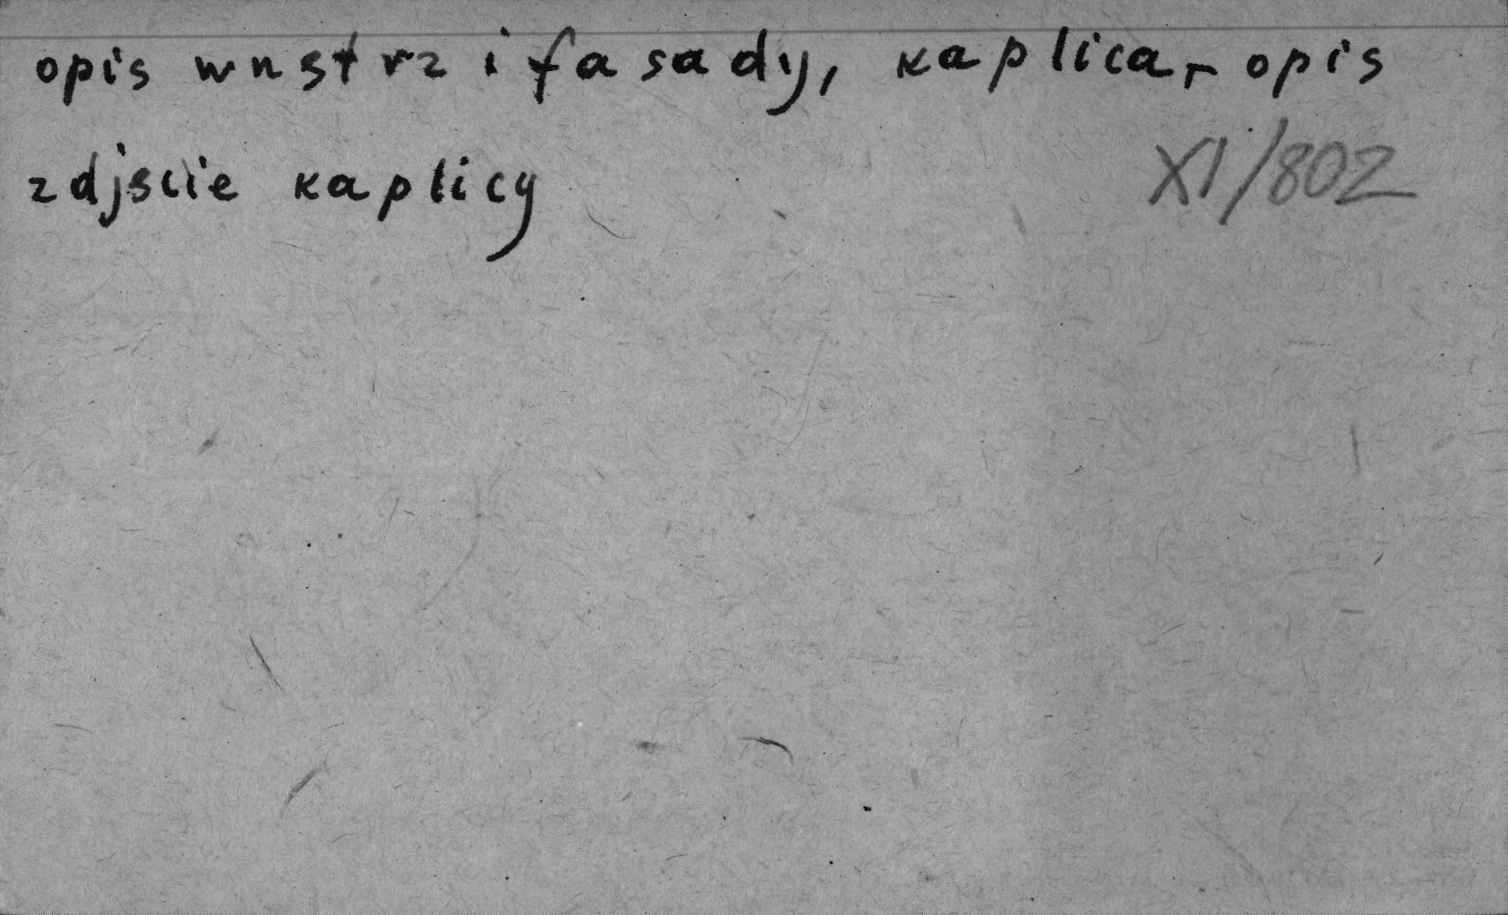 opis wnstrz i fasady, kaplica - opis
zdjscie kaplicy
XI/802